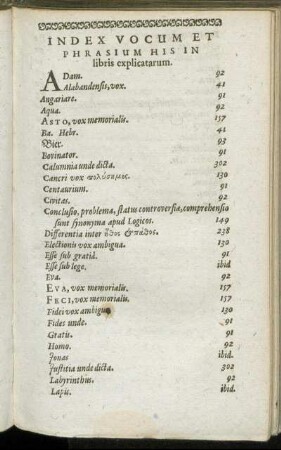 INDEX VOCUM ET
PHRASIUM HIS IN
libris explicatarum.
ADam. 92
Alabandensis, vox. 41
Angariare. 91
Aqua. 92
ASTO, vox memorialis. 157
Ba. Hebr. 41
Bier. 93
Bovinator. 91
Calumnia unde dicta. 302
Cancri vox πολύσημος. 130
Centaurium. 91
Civitas. 92
Conclusio, problema, status controversiæ, comprehensio
sunt synonyma apud Logicos. 149
Differentia inter ἦθος & πάθος. 238
Electionis vox ambigua. 130
Esse sub gratiâ. 91
Esse sub lege. ibid
Eva. 92
EVA, vox memorialis. 157
FECI, vox memorialis. 157
Fidei vox ambigua 130
Fides unde. 91
Gratis. 91
Homo. 92
Jonas ibid.
Justitia unde dicta. 302
Labyrinthus. 92
Lapis. ibid.